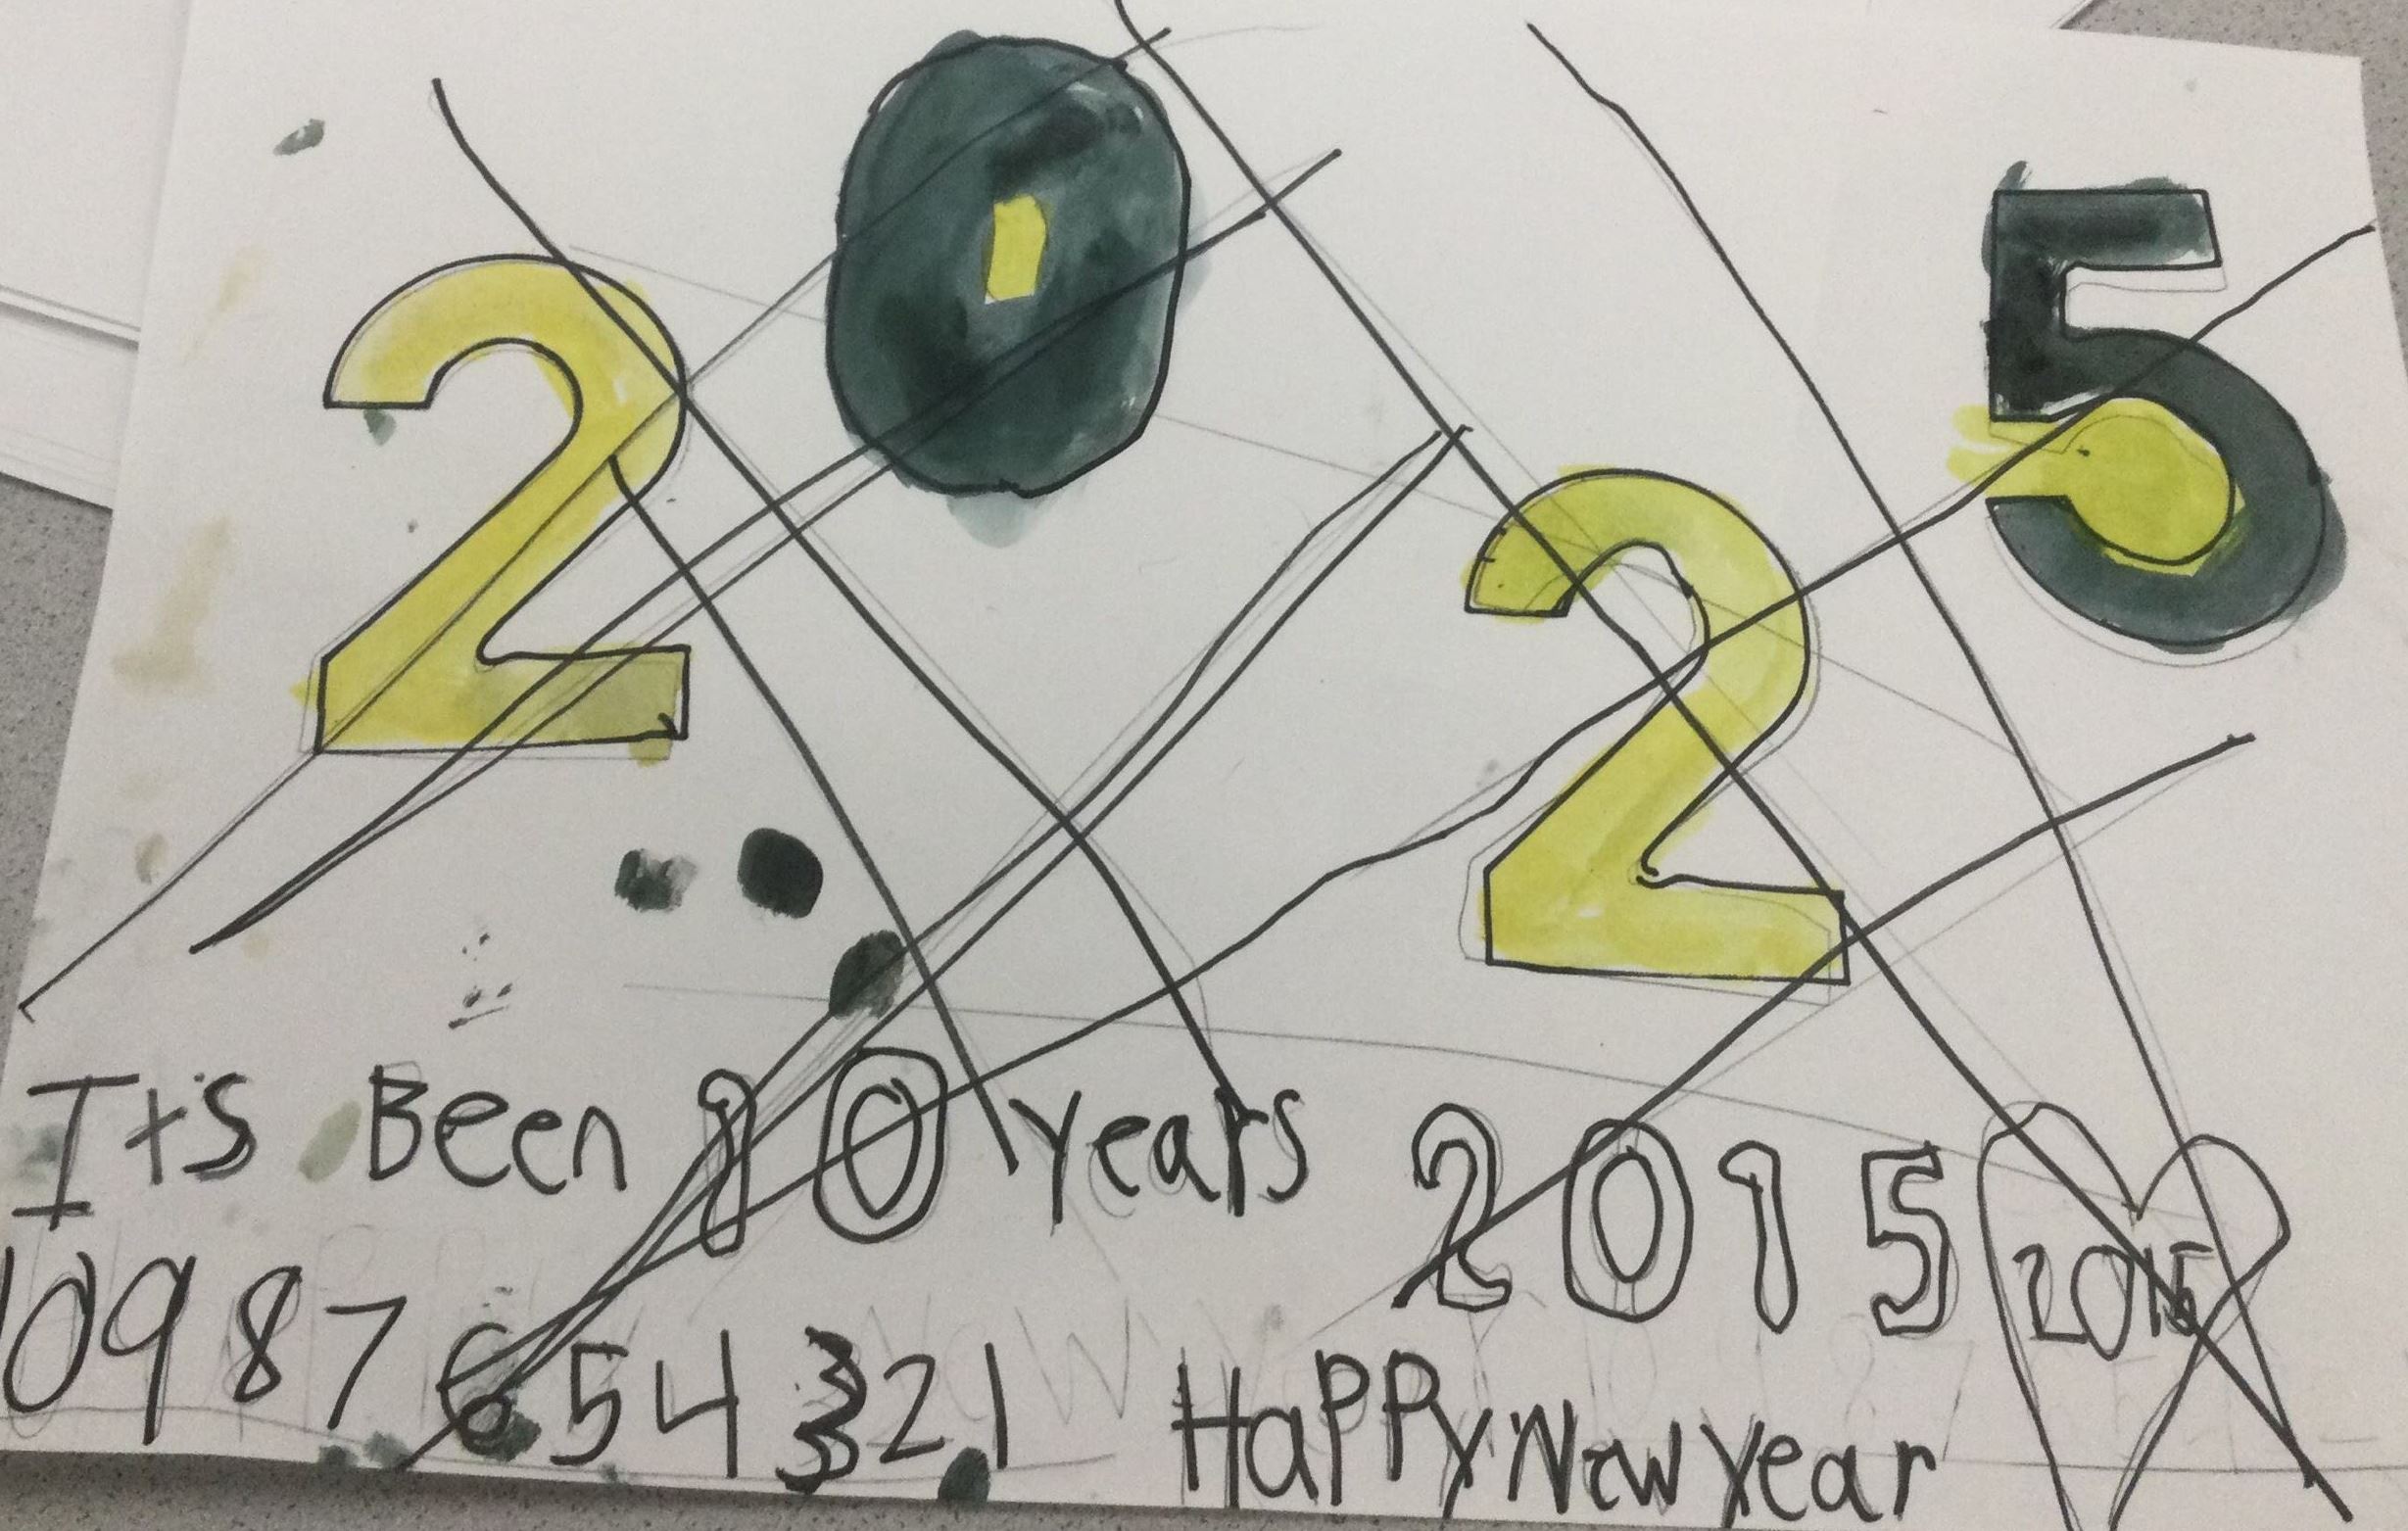 2025
It's Been 10 years 2015
2015
10 9 8 7 6 5 4 3 2 1 Happy New year